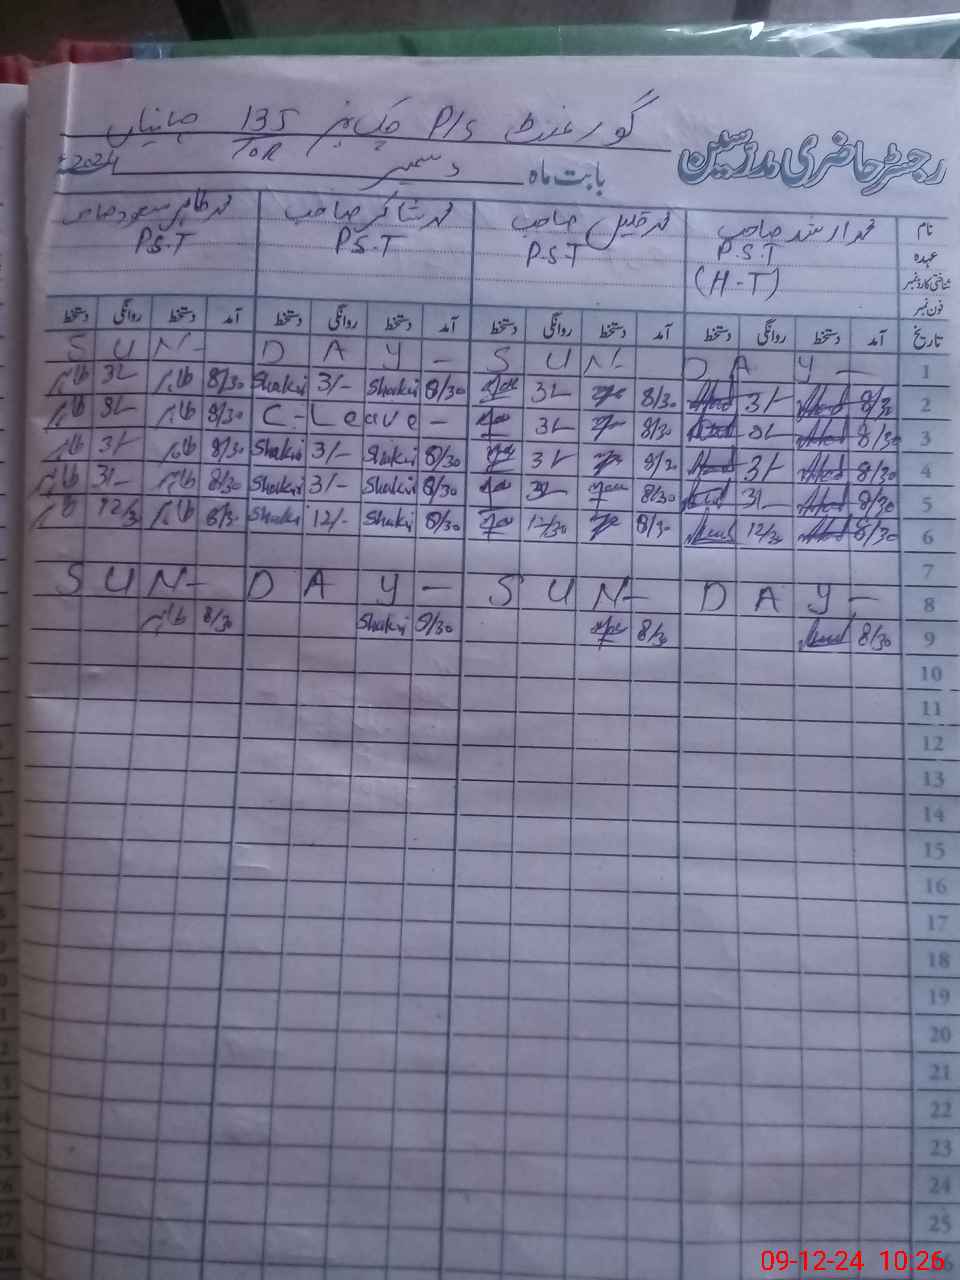 رجسٹر حاضری مدرسین
گورنمنٹ P/S چک نمبر 135 جہانیاں
10R
بابت ماہ دسمبر 2024ء
نام محمد ارشد صاحب محمد صاحب محمد شاکر صاحب محمد طاہر مسعود صاحب
عہدہ P.S.T P-S-T P.S.T P.S.T
شناختی کارڈ نمبر (H-T)
فون نمبر
تاریخ آمد دستخط روانگی دستخط آمد دستخط روانگی دستخط آمد دستخط روانگی دستخط آمد دستخط روانگی دستخط
1 SUN- DAY- SUN- DAY-
2 8/30 3/- 8/30 3/- 8/30 Shakir 3/- Shakir 8/30 طاہر 3/- طاہر
3 8/30 3/- 8/30 3/- C-Leave- 8/30 طاہر 3/- طاہر
4 8/30 3/- 3/- 8/30 Shakir 3/- Shakir 8/30 طاہر 3/- طاہر
5 8/30 3/- 8/30 3/- 8/30 Shakir 3/- Shakir 8/30 طاہر 3/- طاہر
6 8/30 12/30 8/30 12/30 8/30 Shakir 12/- Shakir 8/30 طاہر 12/30 طاہر
7
8 SUN- DAY- SUN- DAY-
9 8/30 8/30 8/30 Shakir 8/30 طاہر
10
11
12
13
14
15
16
17
18
19
20
21
22
23
24
25
09-12-24 10:26